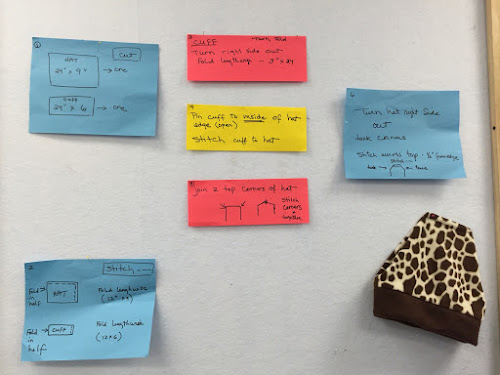 1
CUT
HAT
24" x 9" → one
CUFF
24" x 6 → one
2
Stitch ----
Fold in half
HAT
Fold lengthwise
Fold in half
CUFF
Fold lengthwise
(12 x 6)
3
CUFF
Turn right side out
Fold lengthwise - 3" x 24
4
Pin cuff to inside of hat
edge (open)
Stitch cuff to hat
5
Join 2 top corners of hat
Stitch
corners
together
6
Turn hat right side
out
tuck corners
Stitch across top
tuck → ← tuck